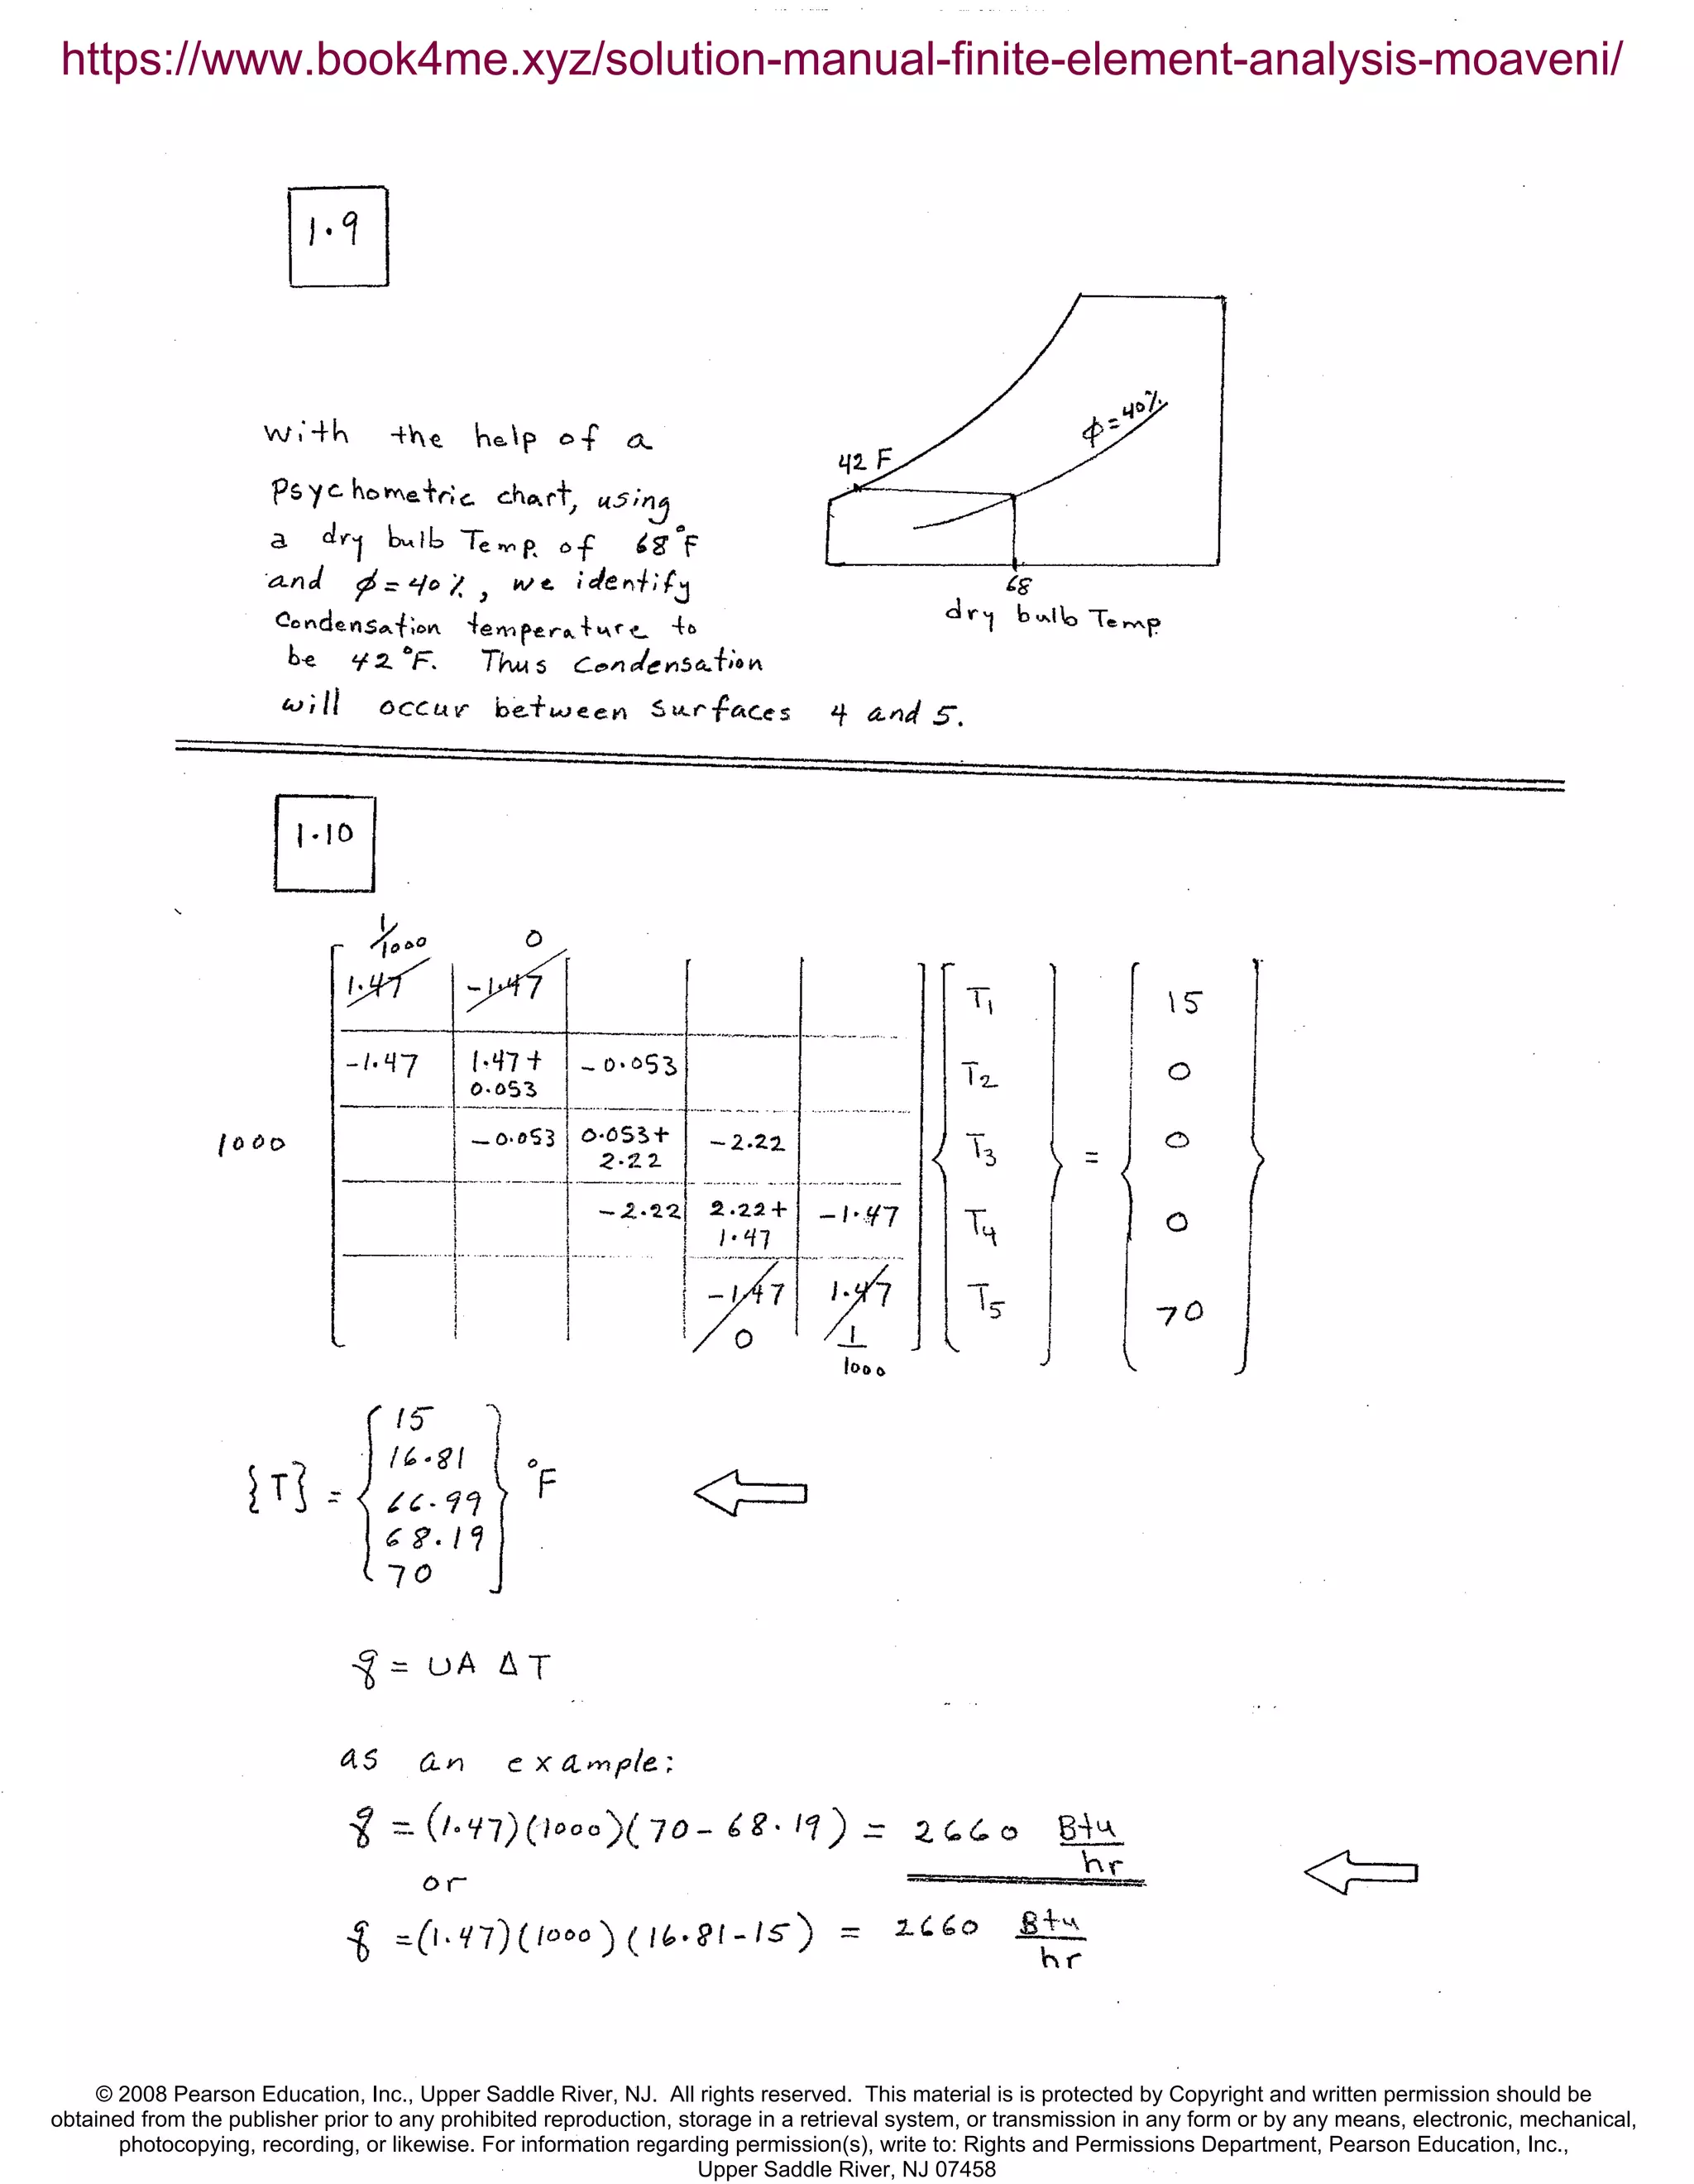 https://www.book4me.xyz/solution-manual-finite-element-analysis-moaveni/
1.9
with the help of a
Psychometric chart, using
a dry bulb Temp. of 68°F
and ϕ = 40%, we identify
Condensation temperature to
be 42°F. Thus condensation
will occur between surfaces 4 and 5.
ϕ = 40%
42 F
68
dry bulb Temp
1.10
1/1000 0
1.47 -1.47 T1 15
-1.47 1.47 + -0.053 T2 0
0.053
1000 -0.053 0.053+ -2.22 T3 = 0
2.22
-2.22 2.22+ -1.47 T4 0
1.47
-1.47 1.47 T5 70
0 1
1000
15
16.81
{T} = 66.99 °F
68.19
70
q = UA ΔT
as an example:
q = (1.47)(1000)(70 - 68.19) = 2660 Btu
hr
or
q = (1.47)(1000)(16.81-15) = 2660 Btu
hr
© 2008 Pearson Education, Inc., Upper Saddle River, NJ. All rights reserved. This material is is protected by Copyright and written permission should be
obtained from the publisher prior to any prohibited reproduction, storage in a retrieval system, or transmission in any form or by any means, electronic, mechanical,
photocopying, recording, or likewise. For information regarding permission(s), write to: Rights and Permissions Department, Pearson Education, Inc.,
Upper Saddle River, NJ 07458